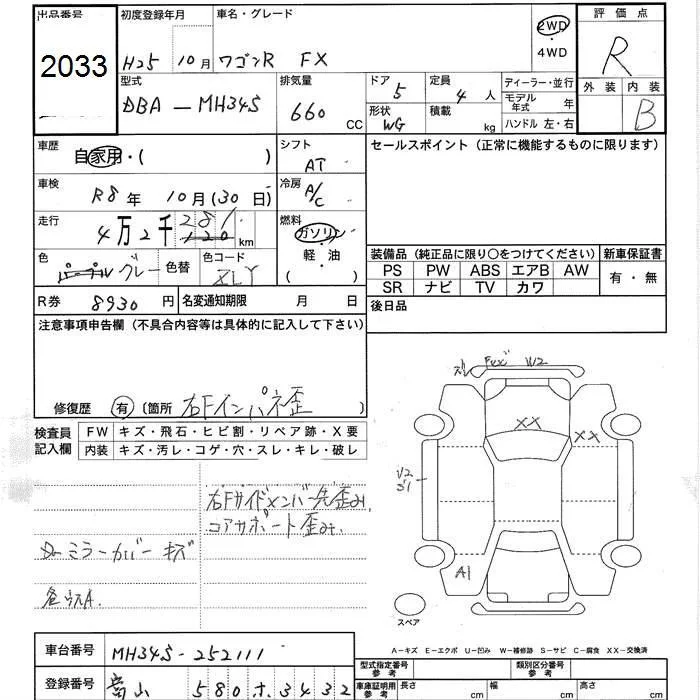 出品番号 初度登録年月 車名・グレード 2WD 評価点
2033 H25 10月 ワゴンR FX ・4WD R
型式 排気量 ドア 5 定員 4 人 ディーラー・並行 外装 内装
DBA-MH34S 660 CC 形状 WG 積載 kg モデル年式 年 B
ハンドル 左・右
車歴 自家用・( ) シフト AT セールスポイント (正常に機能するものに限ります)
車検 R8年 10月(30日) 冷房 A/C
走行 4万2千281 km 燃料 ガソリン・軽・油
( )
色 パープル グレー 色替 色コード ZLY
装備品 (純正品に限り○をつけてください) 新車保証書
PS PW ABS エアB AW 有・無
SR ナビ TV カワ
R券 8930円 名変通知期限 月 日 後日品
注意事項申告欄 (不具合内容等は具体的に記入して下さい)
修復歴 有 (箇所 右Fインパネ歪 )
検査員記入欄 FW キズ・飛石・ヒビ割・リペア跡・X要
内装 キズ・汚レ・コゲ・穴・スレ・キレ・破レ
Fバンパ W2
XX
XX
U2
S1
A1
スペア
右Fサイドメンバー先歪み
コアサポート歪み
ミラーカバーキズ
各ウスA.
A-キズ E-エクボ U-凹み W-補修跡 S-サビ C-腐食 XX-交換済
車台番号 MH34S-252111
登録番号 富山 580 ホ 3432
型式指定番号 参考 類別区分番号 参考
車庫証明用 参考 長さ cm 幅 cm 高さ cm